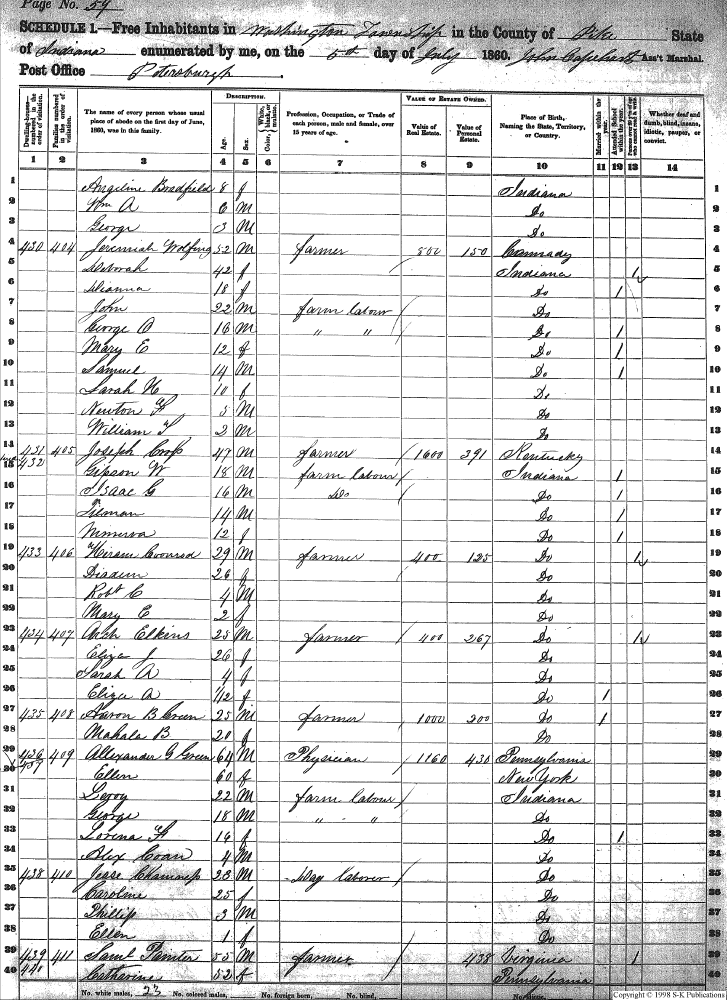 Page No. 59
SCHEDULE 1.—Free Inhabitants in Washington Township in the County of Pike State
of Indiana enumerated by me, on the 5th day of July 1860. John Capehart Ass't Marshal.
Post Office Petersburgh
DESCRIPTION. VALUE OF ESTATE OWNED.
Dwelling-houses—numbered in the order of visitation. Families numbered in the order of visitation. The name of every person whose usual place of abode on the first day of June, 1860, was in this family. Age. Sex. Color, White, black, or mulatto. Profession, Occupation, or Trade of each person, male and female, over 15 years of age. Value of Real Estate. Value of Personal Estate. Place of Birth, Naming the State, Territory, or Country. Married within the year. Attended School within the year. Whether deaf and dumb, blind, insane, idiotic, pauper, or convict.
1 2 3 4 5 6 7 8 9 10 11 12 13 14
1 Angeline Bradfield 8 f Indiana 1
2 Wm A 6 M Do 2
3 George 3 M Do 3
4 430 404 Jeremiah Wolfing 52 M farmer 800 150 4
5 Deborah 42 f Indiana 1 5
6 Dianna 18 f Do 1 6
7 John 22 M farm labour Do 7
8 George O 16 M " " Do 1 8
9 Mary E 12 f Do 1 9
10 Samuel 14 M Do 1 10
11 Sarah H 10 f Do 11
12 Newton F 5 M Do 12
13 William S 2 M Do 13
14 431 405 Joseph 47 M farmer 1600 391 Kentucky 14
15 432 Gibson W 18 M farm labour Indiana 1 15
16 Isaac G 16 M Do Do 1 16
17 Tilman 14 M Do 1 17
18 Minerva 12 f Do 1 18
19 433 406 Hiram Coonrod 29 M farmer 400 125 Do 1 19
20 Diadem 26 f Do 20
21 Robt C 4 M Do 21
22 Mary E 2 f Do 22
23 434 407 Arch Elkins 25 M farmer 400 267 Do 1 23
24 Eliza J 26 f Do 24
25 Sarah A 4 f Do 25
26 Eliza A 1/12 f Do 1 26
27 435 408 Aaron B Green 25 M farmer 1000 200 Do 1 27
28 Mahala B 20 f Do 28
29 436 409 Allexander G Green 64 M Physician 1160 430 Pennsylvania 29
30 437 Ellen 60 f New York 30
31 Leroy 22 M farm labour Indiana 31
32 George 18 M " " Do 32
33 Lorena F 16 f Do 1 33
34 Alex Coan 4 M Do 34
35 438 410 Jesse 28 M Day laborer Do 35
36 Caroline 25 f Do 36
37 Phillip 3 M Do 37
38 Ellen 1 f Do 38
39 439 411 Painter 55 M farmer 438 Virginia 1 39
40 440 Catherine 52 f Pennsylvania 40
No. white males, 23 No. colored males, No. foreign born, No. blind,
Copyright © 1998 S-K Publications